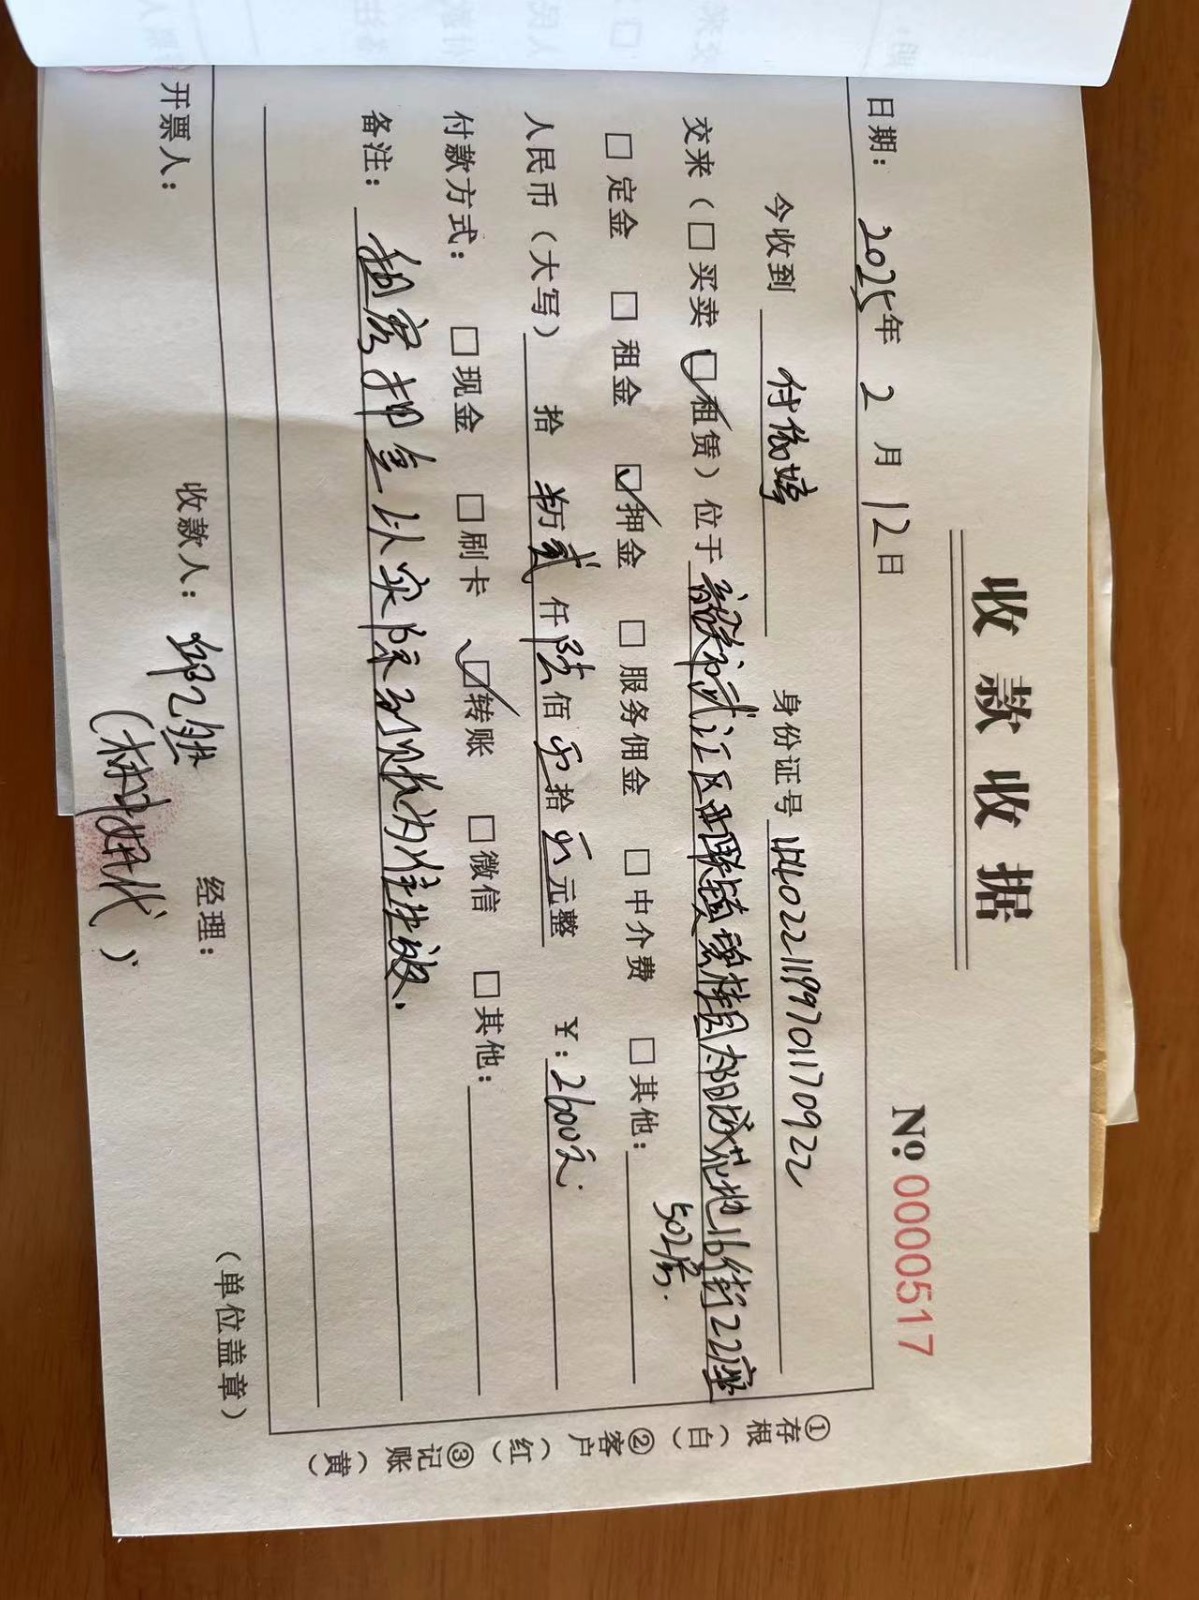 收款收据
№ 0000517
日期： 2025年 2 月 12日
今收到 付俊婷 身份证号 440221199701170922
交来（□买卖 ☑租赁）位于 韶关市武江区西联镇碧桂园太阳城花地16街22座
502房.
□定金 □租金 ☑押金 □服务佣金 □中介费 □其他：
人民币（大写） 拾 万 贰 仟 陆 佰 零 拾 零 元整 ￥：2600元.
付款方式： □现金 □刷卡 ☑转账 □微信 □其他：
备注： 租房押金以实际到账为准生效.
①存根（白） ②客户（红） ③记账（黄）
开票人： 收款人： 经理： （单位盖章）
代）